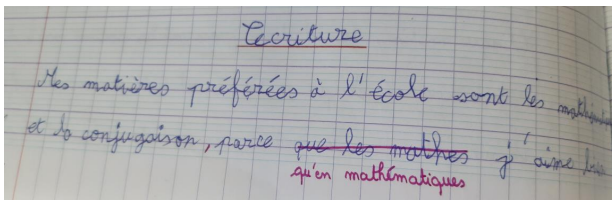 Ecriture
Mes matières préférées à l'école sont les
et la conjugaison, parce que les mathes j'aime
qu'en mathématiques